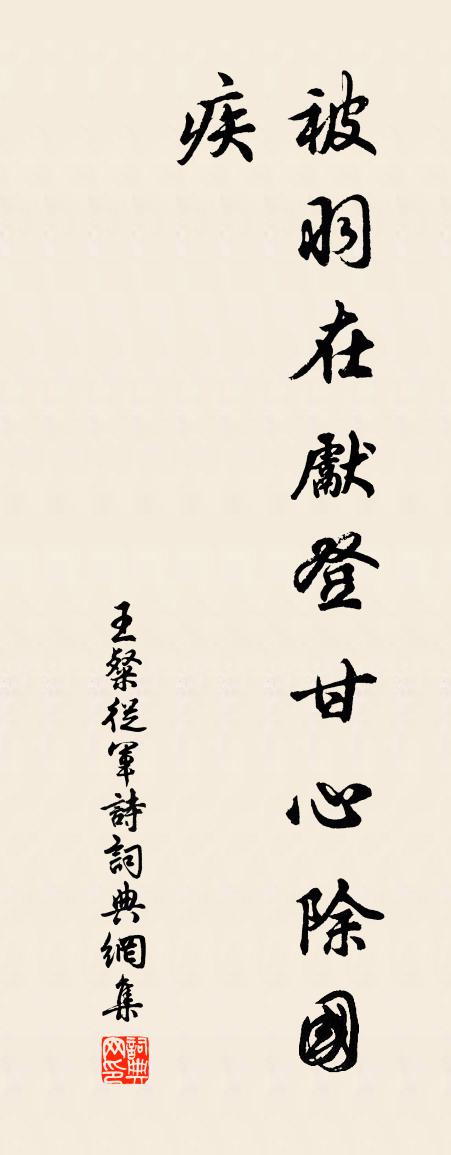 被羽在獻登甘心除國
疾
王粲從軍詩詞典網集
詞典网印